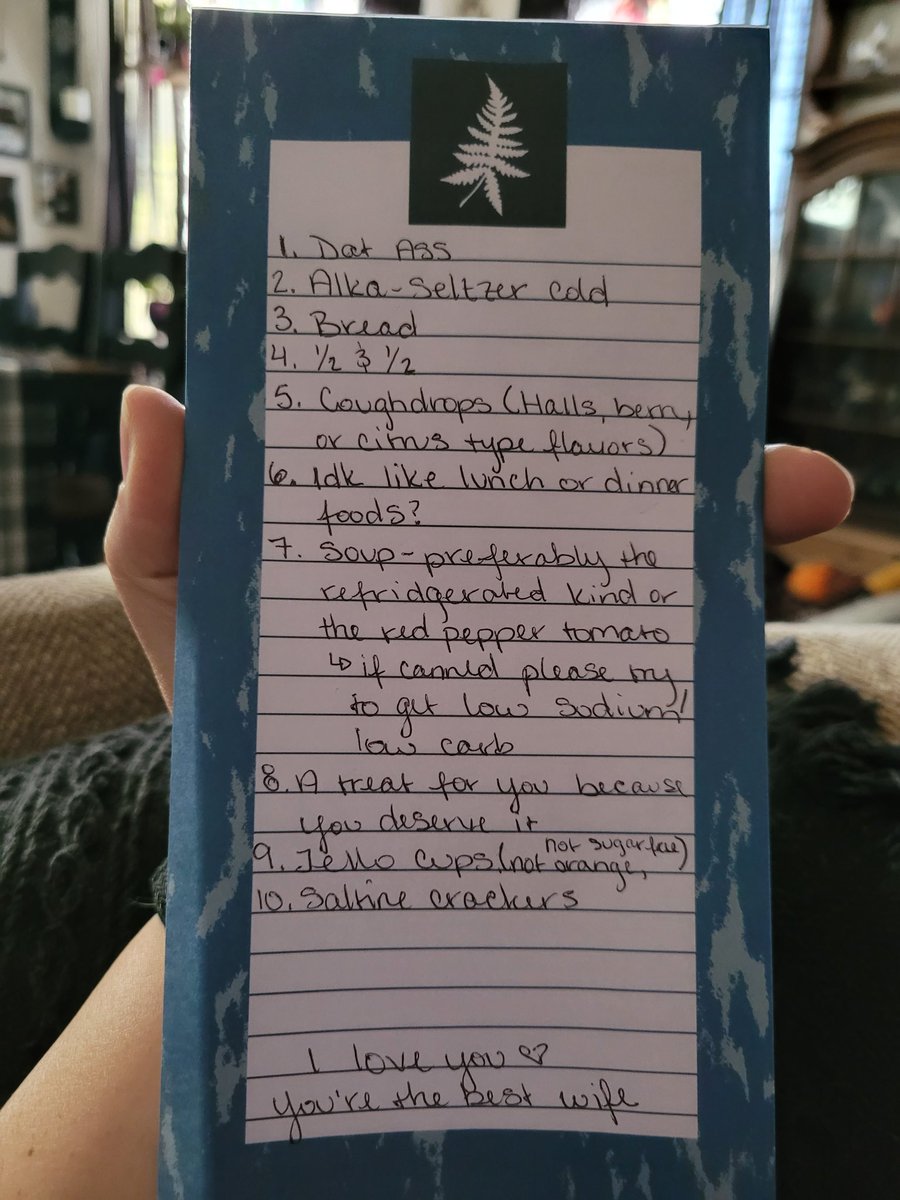 1. Dat Ass
2. Alka-Seltzer Cold
3. Bread
4. ½ & ½
5. Coughdrops (Halls, berry,
or citrus type flavors)
6. Idk like lunch or dinner
foods?
7. Soup-preferably the
refridgerated kind or
the red pepper tomato
↳ if canned please try
to get low sodium/
low carb
8. A treat for you because
you deserve it
9. Jello cups (not orange, not sugar free)
10. Saltine crackers
I love you ♡
You're the best wife